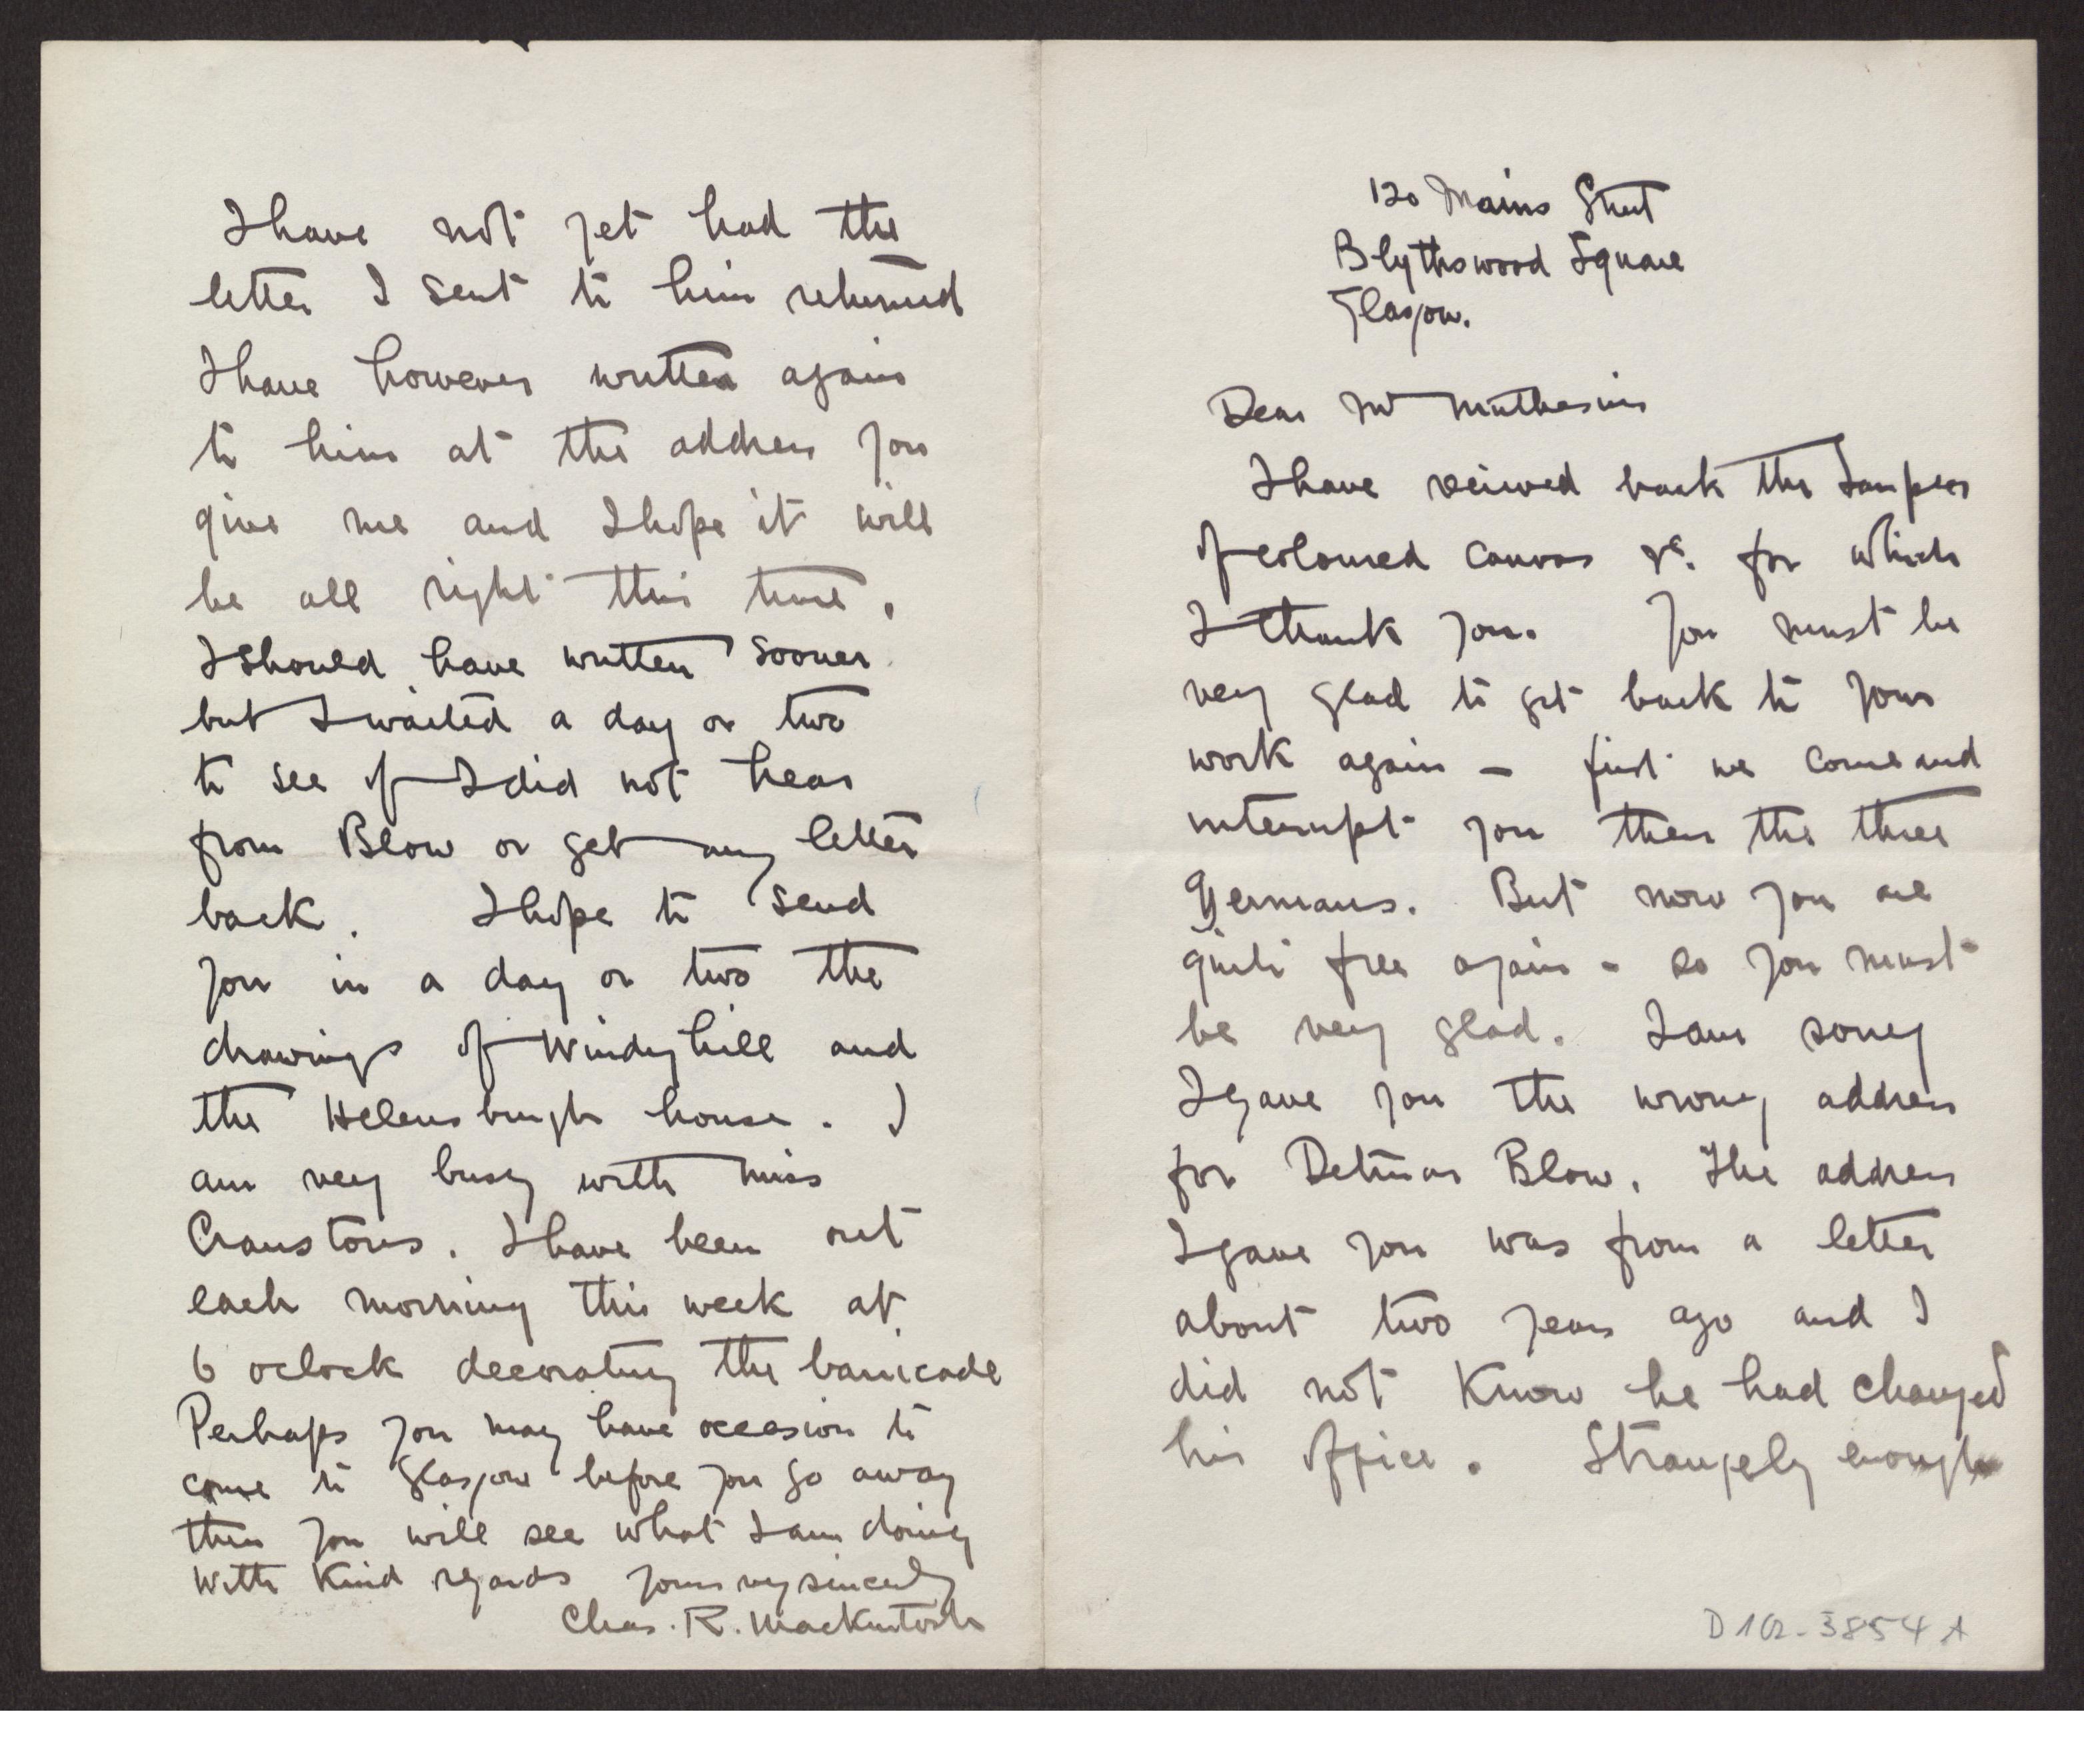 120 Mains Street
Blythswood Square
Glasgow.
Dear Mr Muthesius
I have recieved back the Samples
of coloured canvas &c. for which
I thank you. You must be
very glad to get back to your
work again – first we come and
interrupt you then the three
Germans. But now you are
quite free again – so you must
be very glad. I am sorry
I gave you the wrong address
for Detmar Blow. The address
I gave you was from a letter
about two years ago and I
did not know he had changed
his office. Strangely enough
I have not yet had the
letter I sent to him returned
I have however written again
to him at the address you
give me and I hope it will
be all right this time.
I should have written sooner
but I waited a day or two
to see if I did not hear
from Blow or get my letter
back. I hope to send
you in a day or two the
drawings of Windyhill and
the Helensburgh house. I
am very busy with Miss
Cranstons. I have been out
each morning this week at
6 oclock decorating the barricade
Perhaps you may have occasion to
come to Glasgow before you go away
then you will see what I am doing
With kind regards yours very sincerely
Chas. R. Mackintosh
D 102-3854 A